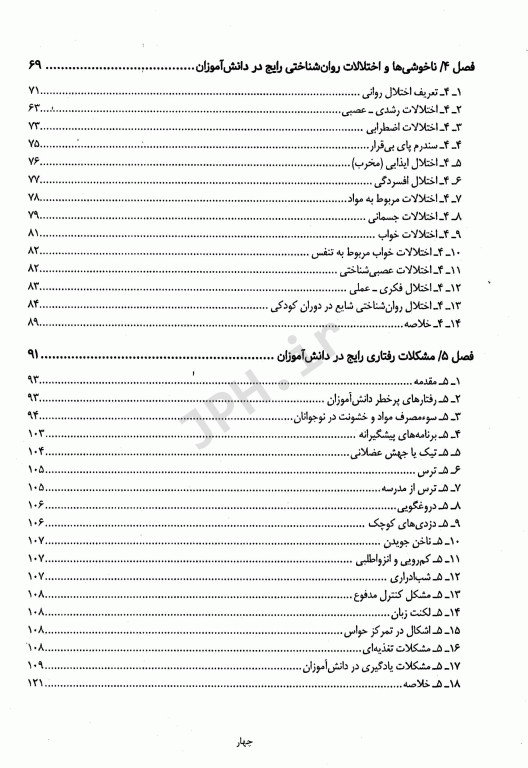 فصل ۴/ ناخوشی‌ها و اختلالات روان‌شناختی رایج در دانش‌آموزان ........ ۶۹
۱ـ ۴ـ تعریف اختلال روانی ........ ۷۱
۲ـ ۴ـ اختلالات رشدی ـ عصبی ........ ۶۳
۳ـ ۴ـ اختلالات اضطرابی ........ ۷۳
۴ـ ۴ـ سندرم پای بی‌قرار ........ ۷۵
۵ـ ۴ـ اختلال ایذایی (مخرب) ........ ۷۶
۶ـ ۴ـ اختلال افسردگی ........ ۷۷
۷ـ ۴ـ اختلالات مربوط به مواد ........ ۷۸
۸ـ ۴ـ اختلالات جسمانی ........ ۷۹
۹ـ ۴ـ اختلالات خواب ........ ۸۱
۱۰ـ ۴ـ اختلالات خواب مربوط به تنفس ........ ۸۲
۱۱ـ ۴ـ اختلالات عصبی‌شناختی ........ ۸۲
۱۲ـ ۴ـ اختلال فکری ـ عملی ........ ۸۳
۱۳ـ ۴ـ اختلال روان‌شناختی شایع در دوران کودکی ........ ۸۴
۱۴ـ ۴ـ خلاصه ........ ۸۹
فصل ۵/ مشکلات رفتاری رایج در دانش‌آموزان ........ ۹۱
۱ـ ۵ـ مقدمه ........ ۹۳
۲ـ ۵ـ رفتارهای پرخطر دانش‌آموزان ........ ۹۳
۳ـ ۵ـ سوءمصرف مواد و خشونت در نوجوانان ........ ۹۴
۴ـ ۵ـ برنامه‌های پیشگیرانه ........ ۱۰۳
۵ـ ۵ـ تیک یا جهش عضلانی ........ ۱۰۴
۶ـ ۵ـ ترس ........ ۱۰۵
۷ـ ۵ـ ترس از مدرسه ........ ۱۰۵
۸ـ ۵ـ دروغگویی ........ ۱۰۶
۹ـ ۵ـ دزدی‌های کوچک ........ ۱۰۶
۱۰ـ ۵ـ ناخن جویدن ........ ۱۰۷
۱۱ـ ۵ـ کم‌رویی و انزواطلبی ........ ۱۰۷
۱۲ـ ۵ـ شب‌ادراری ........ ۱۰۷
۱۳ـ ۵ـ مشکل کنترل مدفوع ........ ۱۰۸
۱۴ـ ۵ـ لکنت زبان ........ ۱۰۸
۱۵ـ ۵ـ اشکال در تمرکز حواس ........ ۱۰۸
۱۶ـ ۵ـ مشکلات تغذیه‌ای ........ ۱۰۸
۱۷ـ ۵ـ مشکلات یادگیری در دانش‌آموزان ........ ۱۰۹
۱۸ـ ۵ـ خلاصه ........ ۱۲۱
چهار
JPH.ir